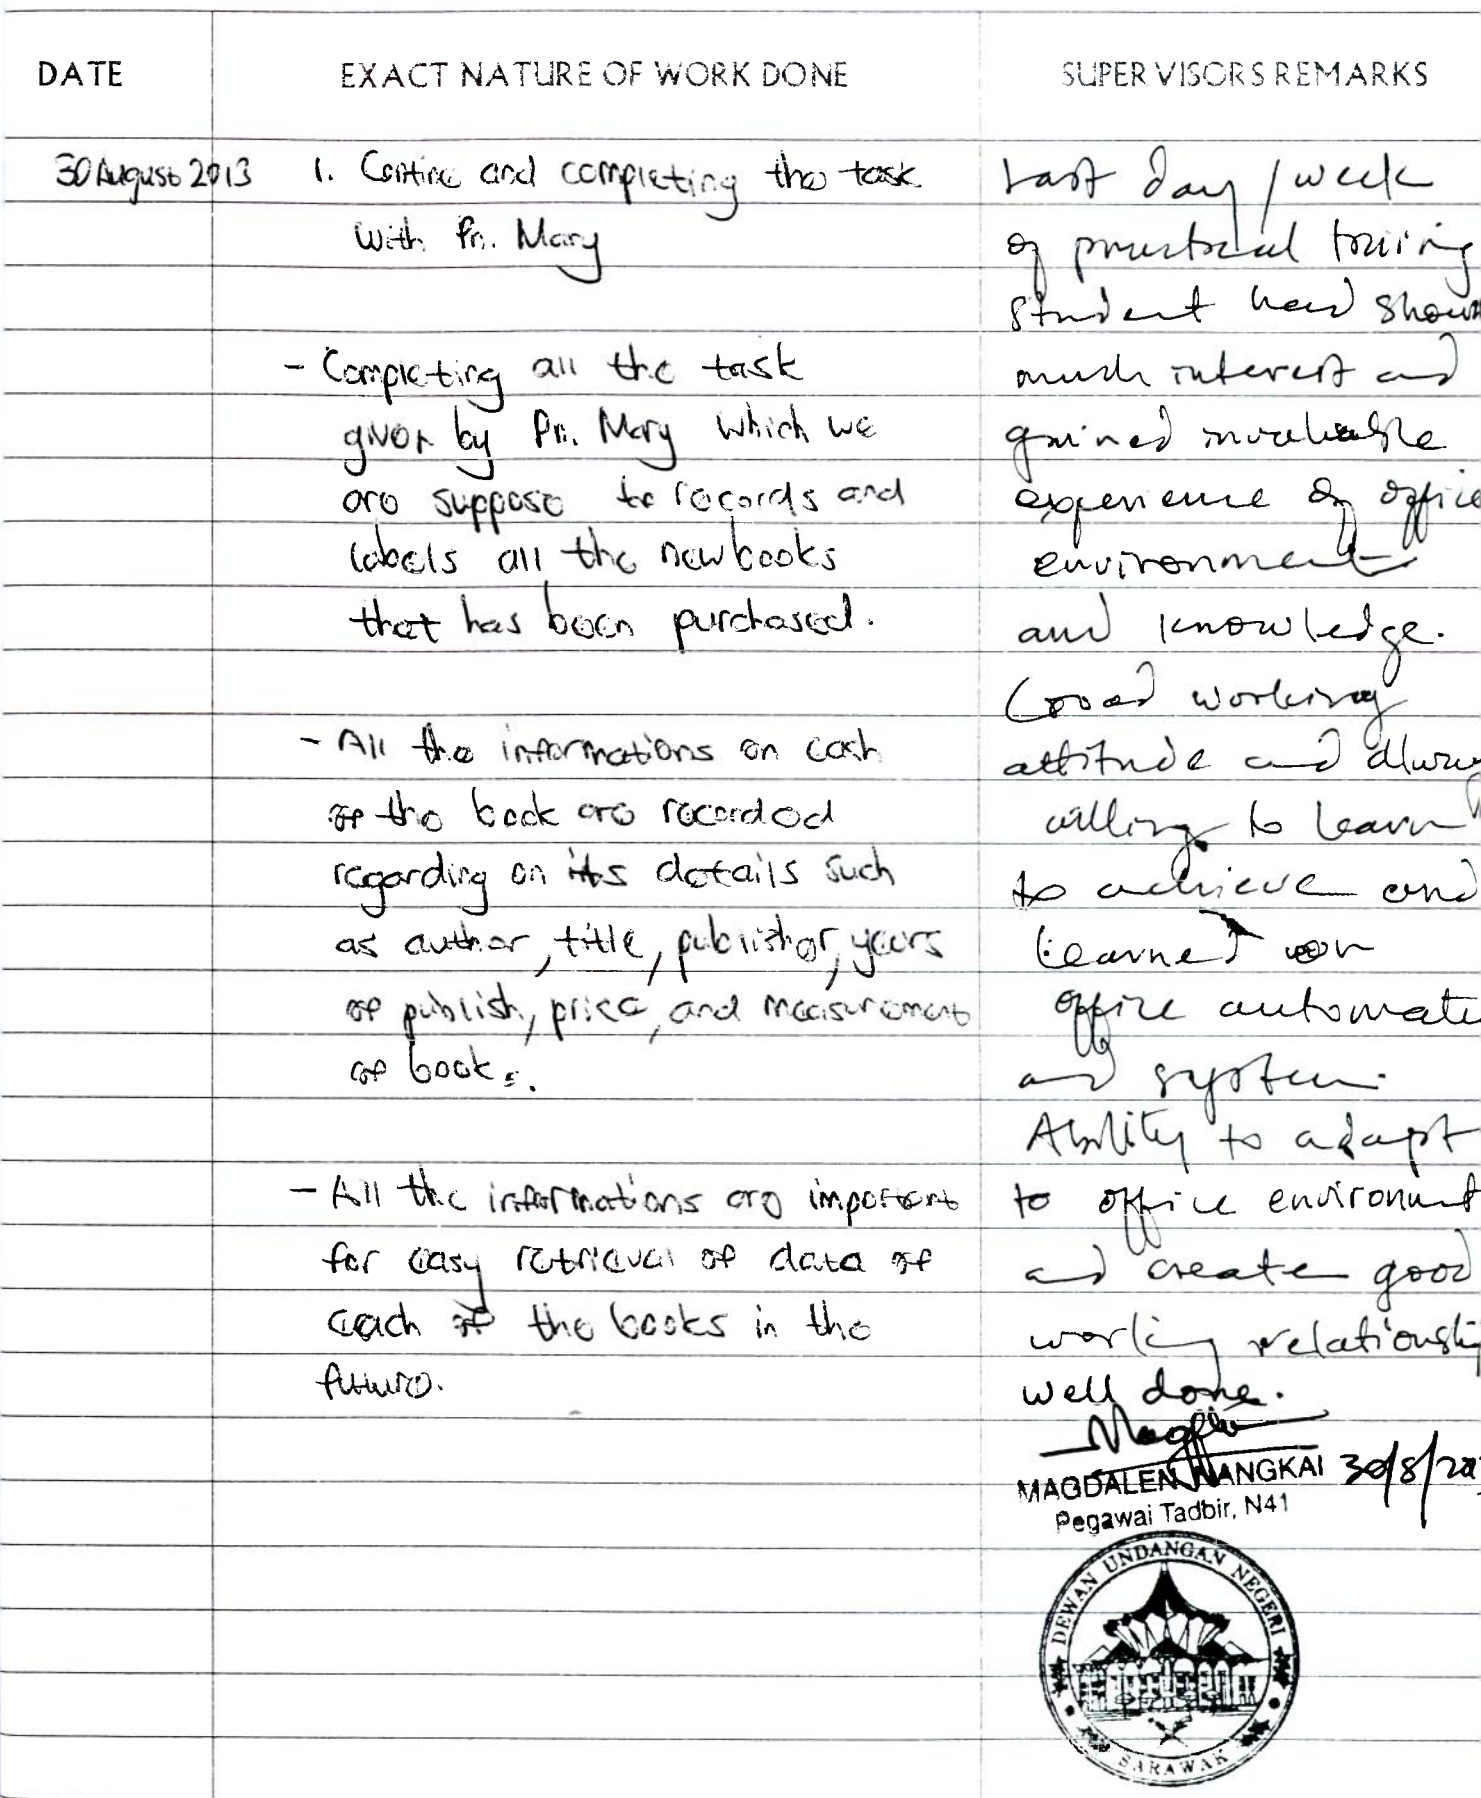 DATE
EXACT NATURE OF WORK DONE
SUPERVISORS REMARKS
30 August 2013
1. Contine and completing the task
with Pn. Mary
- Completing all the task
given by Pn. Mary which we
are suppose to records and
labels all the new books
that has been purchased.
- All the informations on each
of the book are recorded
regarding on its details such
as author, title, publisher, years
of publish, price, and measurement
of books.
- All the informations are important
for easy retrieval of data of
each of the books in the
future.
Last day / week
of practical training
student had shown
much interest and
gained invaluable
experience of office
environment
and knowledge.
Good working
attitude and always
willing to learn
to achieve and
learned on
office automate
and system.
Ability to adapt
to office environment
and create good
working relationship
well done.
MAGDALEN NANGKAI 30/8/201
Pegawai Tadbir, N41
DEWAN UNDANGAN NEGERI
SARAWAK